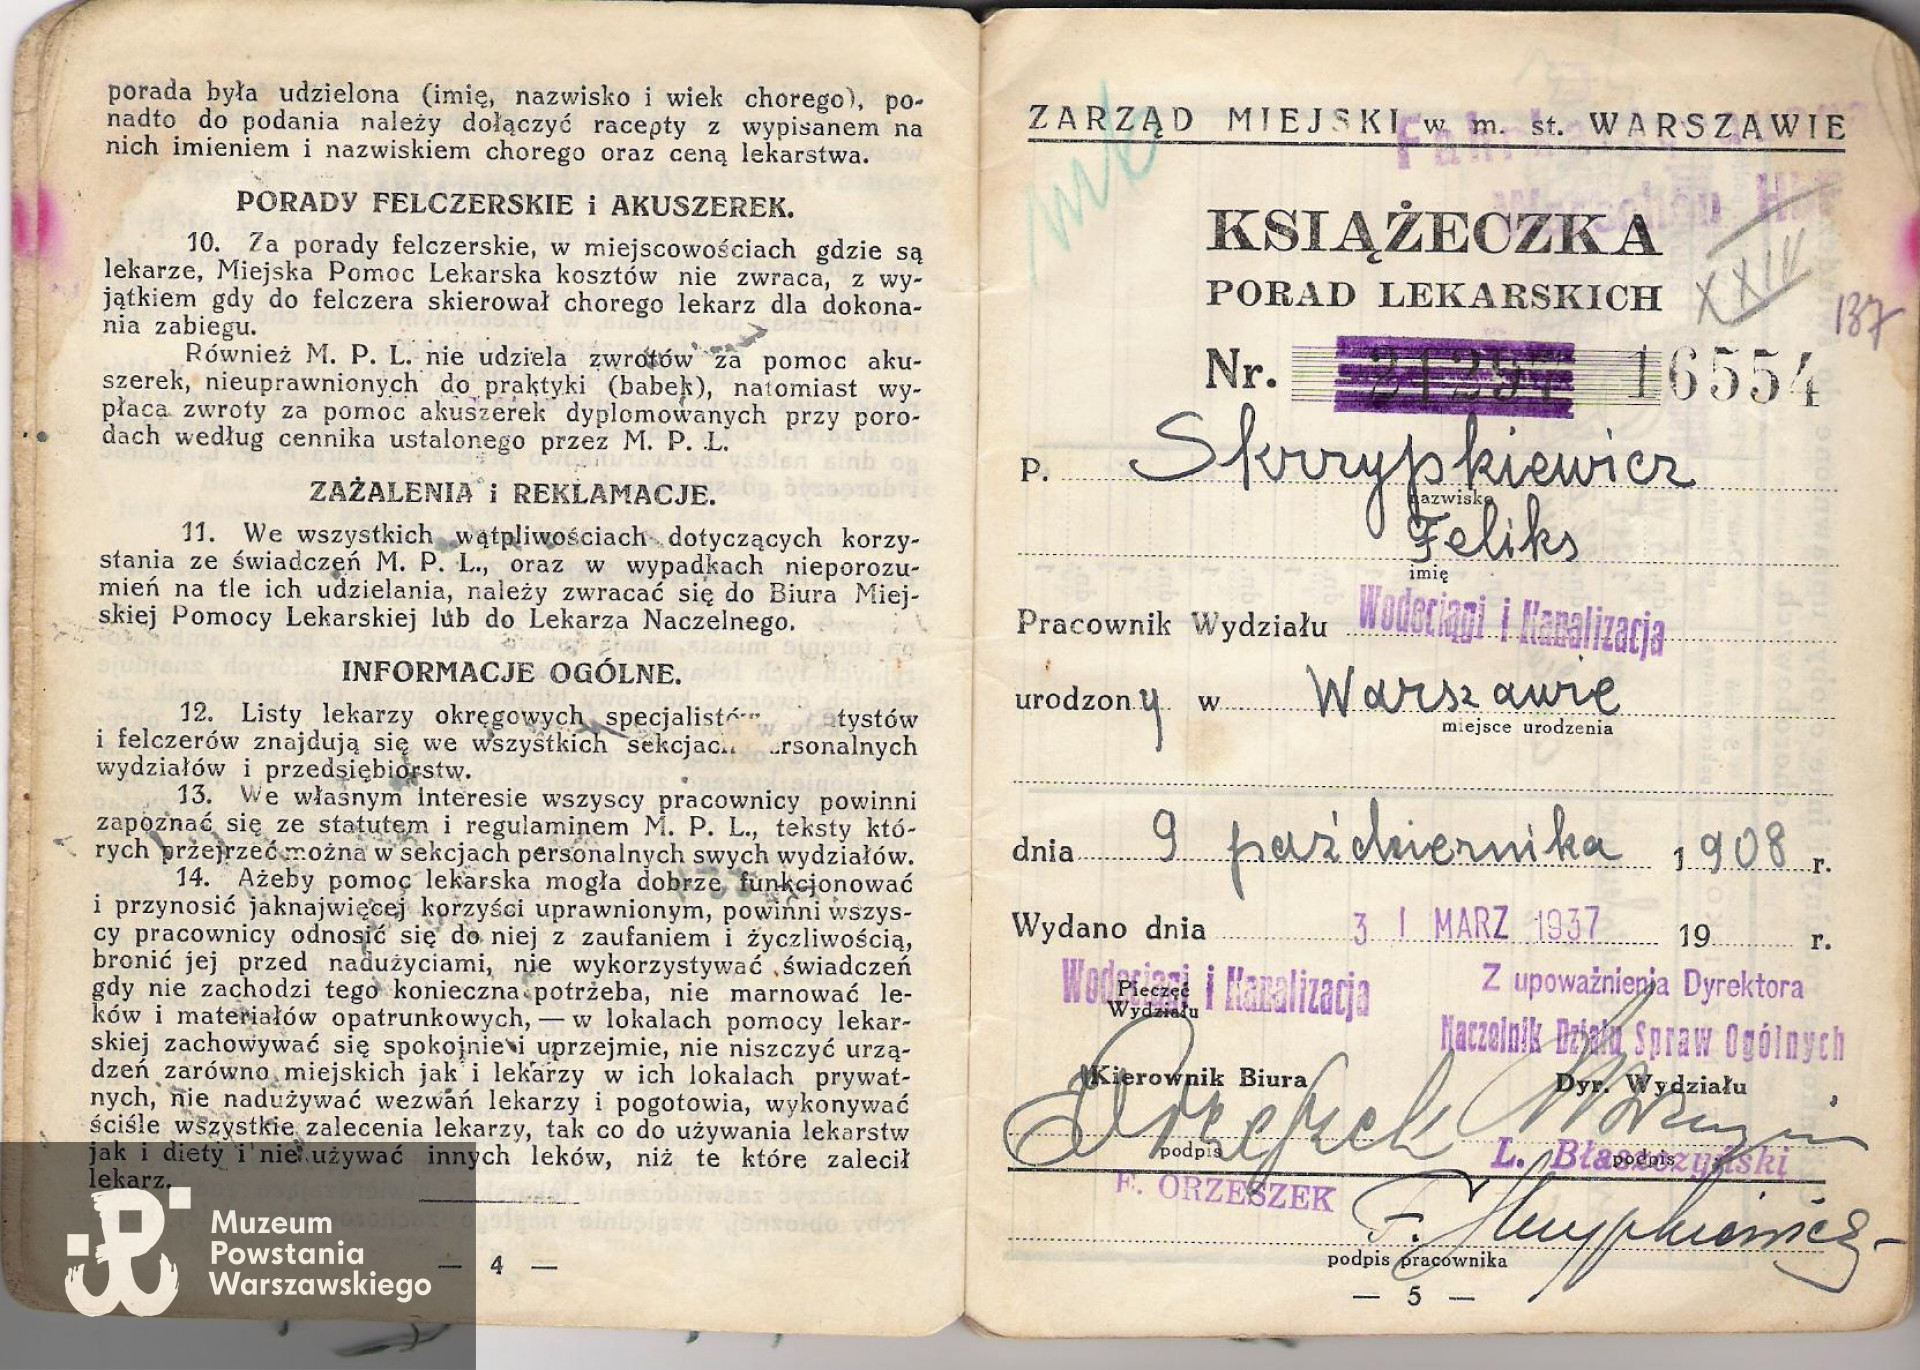 porada była udzielona (imię, nazwisko i wiek chorego), po-
nadto do podania należy dołączyć racepty z wypisanem na
nich imieniem i nazwiskiem chorego oraz ceną lekarstwa.
PORADY FELCZERSKIE i AKUSZEREK.
10. Za porady felczerskie, w miejscowościach gdzie są
lekarze, Miejska Pomoc Lekarska kosztów nie zwraca, z wy-
jątkiem gdy do felczera skierował chorego lekarz dla dokona-
nia zabiegu.
Również M. P. L. nie udziela zwrotów za pomoc aku-
szerek, nieuprawnionych do praktyki (babek), natomiast wy-
płaca zwroty za pomoc akuszerek dyplomowanych przy poro-
dach według cennika ustalonego przez M. P. L.
ZAŻALENIA i REKLAMACJE.
11. We wszystkich wątpliwościach dotyczących korzy-
stania ze świadczeń M. P. L., oraz w wypadkach nieporozu-
mień na tle ich udzielania, należy zwracać się do Biura Miej-
skiej Pomocy Lekarskiej lub do Lekarza Naczelnego.
INFORMACJE OGÓLNE.
12. Listy lekarzy okręgowych specjalistów
i felczerów znajdują się we wszystkich sekcjach personalnych
wydziałów i przedsiębiorstw.
13. We własnym interesie wszyscy pracownicy powinni
zapoznać się ze statutem i regulaminem M. P. L., teksty któ-
rych przejrzeć można w sekcjach personalnych swych wydziałów.
14. Ażeby pomoc lekarska mogła dobrze funkcjonować
i przynosić jaknajwięcej korzyści uprawnionym, powinni wszys-
cy pracownicy odnosić się do niej z zaufaniem i życzliwością,
bronić jej przed nadużyciami, nie wykorzystywać świadczeń
gdy nie zachodzi tego konieczna potrzeba, nie marnować le-
ków i materiałów opatrunkowych, — w lokalach pomocy lekar-
skiej zachowywać się spokojnie i uprzejmie, nie niszczyć urzą-
dzeń zarówno miejskich jak i lekarzy w ich lokalach prywat-
nych, nie nadużywać wezwań lekarzy i pogotowia, wykonywać
ściśle wszystkie zalecenia lekarzy, tak co do używania lekarstw
jak i diety i nie używać innych leków, niż te które zalecił
lekarz.
— 4 —
Muzeum
Powstania
Warszawskiego
ZARZĄD MIEJSKI w m. st. WARSZAWIE
KSIĄŻECZKA
PORAD LEKARSKICH
XXIV
137
Nr. 16554
P. Skrzypkiewicz
nazwisko
Feliks
imię
Pracownik Wydziału Wodociągi i Kanalizacja
urodzony w Warszawie
miejsce urodzenia
dnia 9 października 1908 r.
Wydano dnia 31 MARZ 1937 19 r.
Wodociągi i Kanalizacja
Pieczęć
Wydziału
Z upoważnienia Dyrektora
Naczelnik Działu Spraw Ogólnych
Kierownik Biura Dyr. Wydziału
podpis podpis
F. ORZESZEK L. Błaszczyński
F. Skrzypkiewicz
podpis pracownika
— 5 —